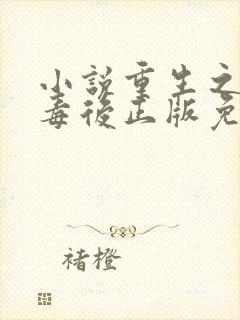 小说重生之
毒后正版免
褚橙